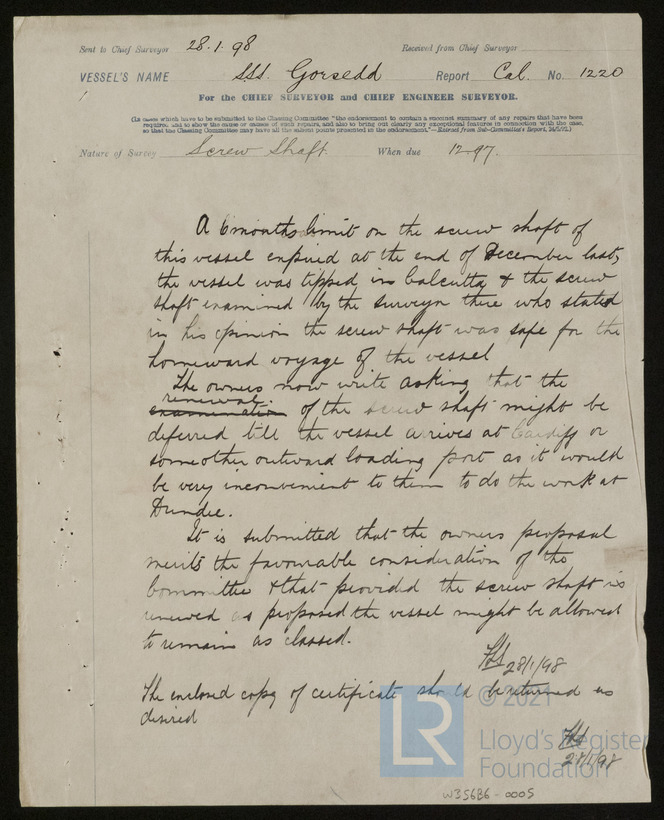 Sent to Chief Surveyor 28.1.98 Received from Chief Surveyor
VESSEL'S NAME SSS. Gorsedd Report Cal. No. 1220
For the CHIEF SURVEYOR and CHIEF ENGINEER SURVEYOR.
(In cases which have to be submitted to the Classing Committee "the endorsement to contain a succinct summary of any repairs that have been
required, and to show the cause or causes of such repairs, and also to bring out clearly any exceptional features in connection with the case,
so that the Classing Committee may have all the salient points presented in the endorsement."—Extract from Sub-Committee's Report,
Nature of Survey Screw Shaft. When due 12.97.
A 6 months limit on the screw shaft of
this vessel expired at the end of December last,
the vessel was tipped in Calcutta & the screw
shaft examined by the surveyor there who stated
in his opinion the screw shaft was safe for the
homeward voyage of the vessel
The owners now write asking that the
renewal
examination of the screw shaft might be
deferred till the vessel arrives at Cardiff or
some other outward loading port as it would
be very inconvenient to them to do the work at
Dundee.
It is submitted that the owners proposal
merits the favourable consideration of the
Committee & that provided the screw shaft is
renewed as proposed the vessel might be allowed
to remain as classed.
28/1/98
The enclosed copy of certificate should be returned as
desired
28/1/98
LR © 2021
Lloyd's Register
Foundation
W35686-0005